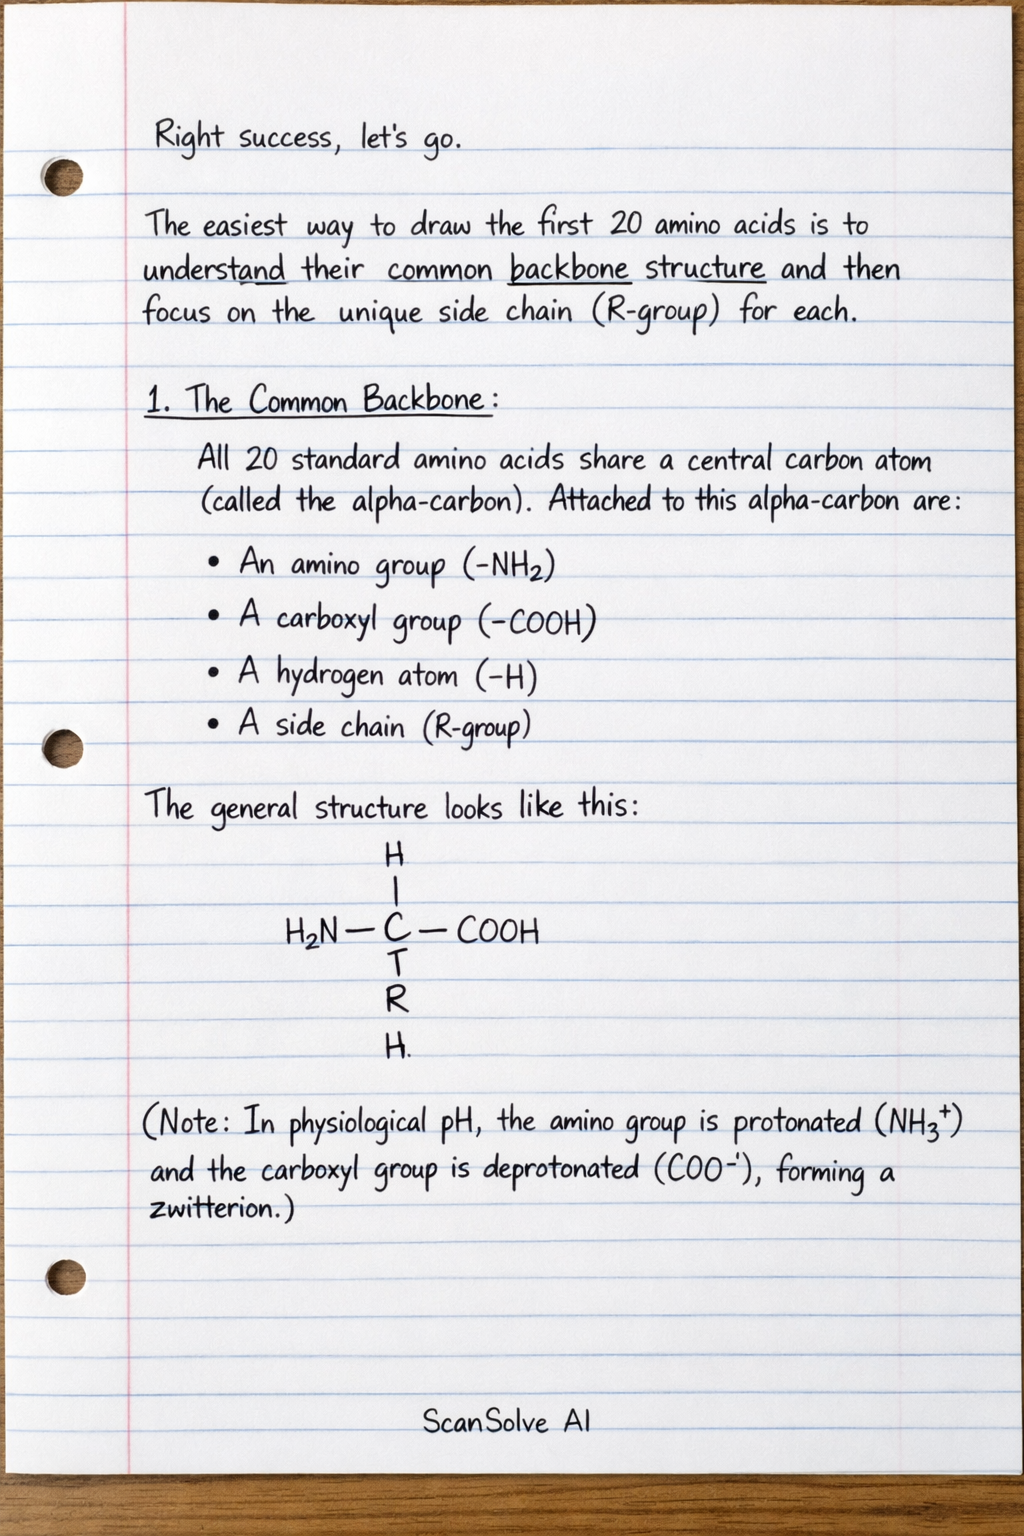 Right success, let's go.
The easiest way to draw the first 20 amino acids is to
understand their common backbone structure and then
focus on the unique side chain (R-group) for each.
1. The Common Backbone:
All 20 standard amino acids share a central carbon atom
(called the alpha-carbon). Attached to this alpha-carbon are:
• An amino group (-NH₂)
• A carboxyl group (-COOH)
• A hydrogen atom (-H)
• A side chain (R-group)
The general structure looks like this:
H
|
H₂N — C — COOH
T
R
H.
(Note: In physiological pH, the amino group is protonated (NH₃⁺)
and the carboxyl group is deprotonated (COO⁻'), forming a
zwitterion.)
ScanSolve AI